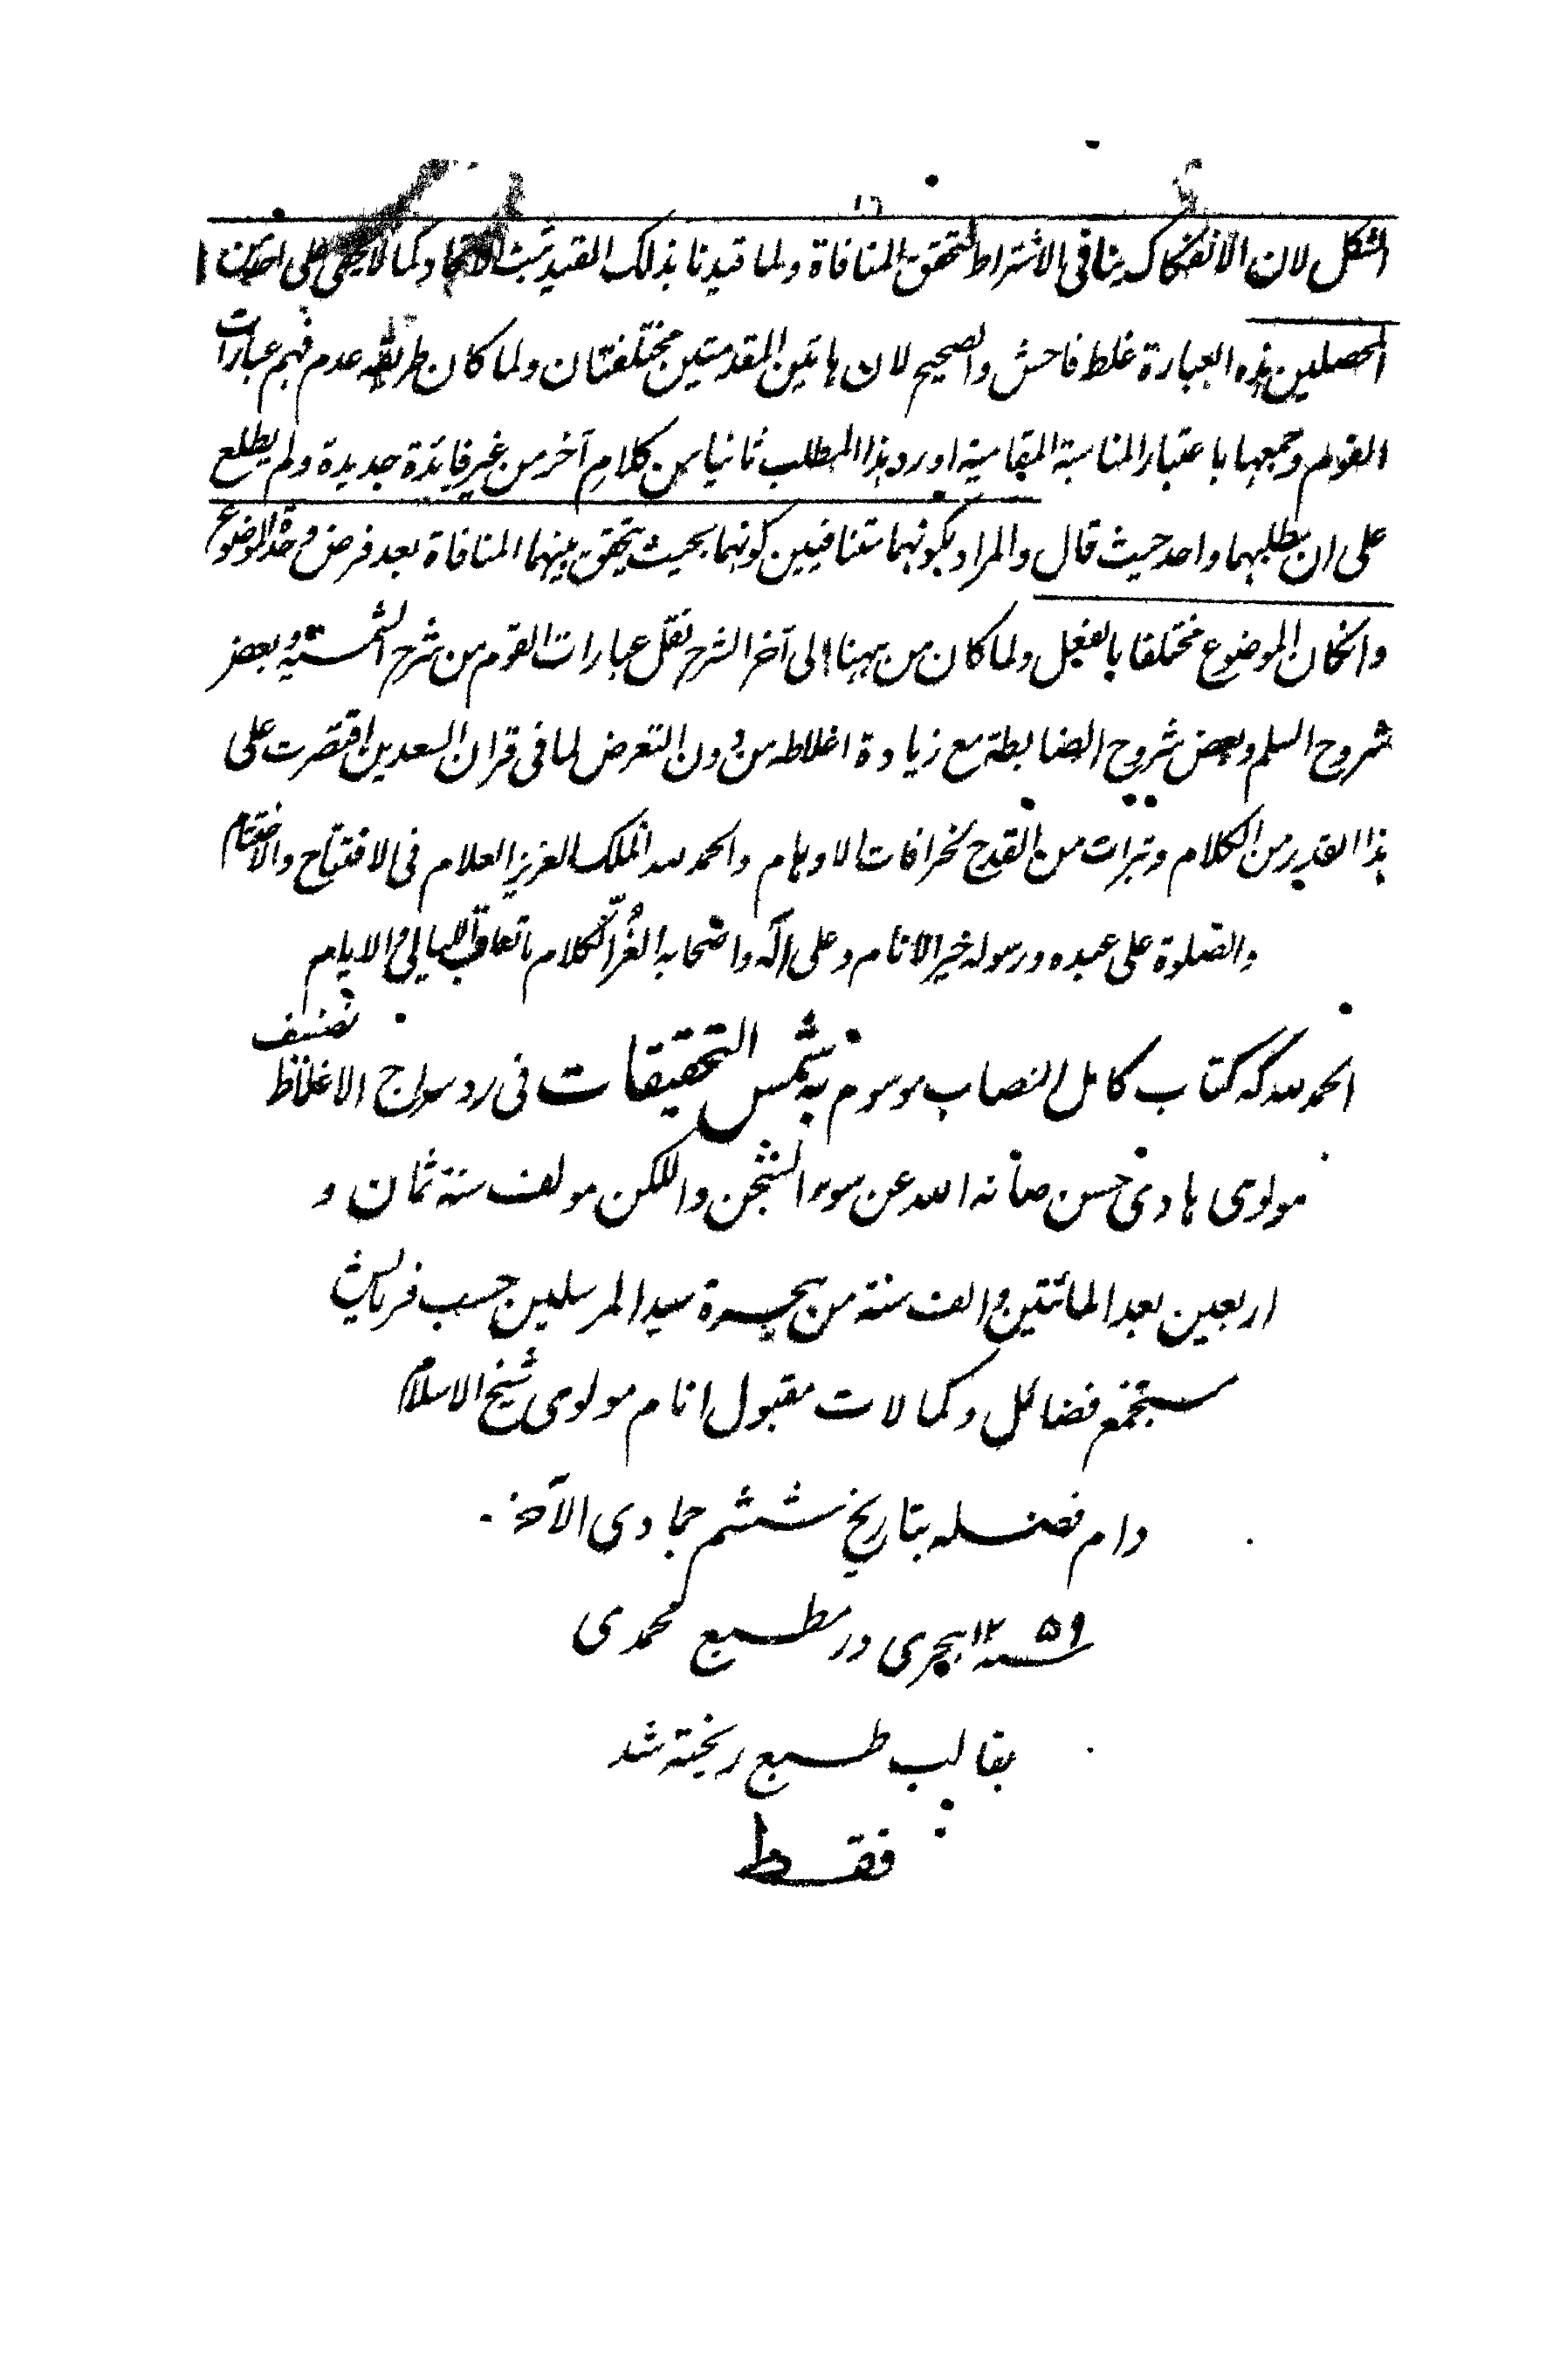 ١٦
الشكل لان الانفكاك ينافى الاشتراط لتحقق المنافاة ولما قيدنا بذلك القيد يثبت كما لا يخفى على احد من
المحصلين هذه العبارة غلط فاحش والصحيح لان هاتين المقدمتين مختلفتان ولما كان طريقه عدم فهم عبارات
القوم وجمعها باعتبار المناسبة المقامية اورد هذا المطلب ثانيا من كلامِ آخر من غير فايدة جديدة ولم يطلع
على ان مطلبهما واحد حيث قال والمراد بكونهما متنافيين كونهما بحيث يتحقق بينهما المنافاة بعد فرض وحدة الموضوع
وانكان الموضوع مختلفا بالفعل ولما كان من ههنا الى آخر الشرح نقل عبارات القوم من شرح الشمسيه و بعض
شروح السلم وبعض شروح الضابطة مع زيادة اغلاطه من دون التعرض لما فى قران السعدين اقتصرت على
هذا القدر من الكلام وتبرات من القدح لخرافات الاوهام والحمد لله الملك العزيز العلام فى الافتتاح والاختتام
والصلوة على عبده ورسوله خير الانام وعلى آله واصحابه الغُرّ الكلام ما تعاقب الليالى و الايام
الحمد لله كه كتاب كامل النصاب موسوم به شمس التحقيقات فى رد سراج الاغلاظ تصنيف
مولوى هادى حسن صانه الله عن سوء الشجن واللكن مولف سنة ثمان و
اربعين بعد المائتين و الف سنة من هجرة سيد المرسلين حسب فرمايش
مستجمع فضائل وكمالات مقبول انام مولوى شيخ الاسلام
دام فضله بتاريخ ششم جمادى الآخر
سنه ١٢۵٩ هجرى در مطبع محمدى
بقالب طبع ريخته شد
فقط